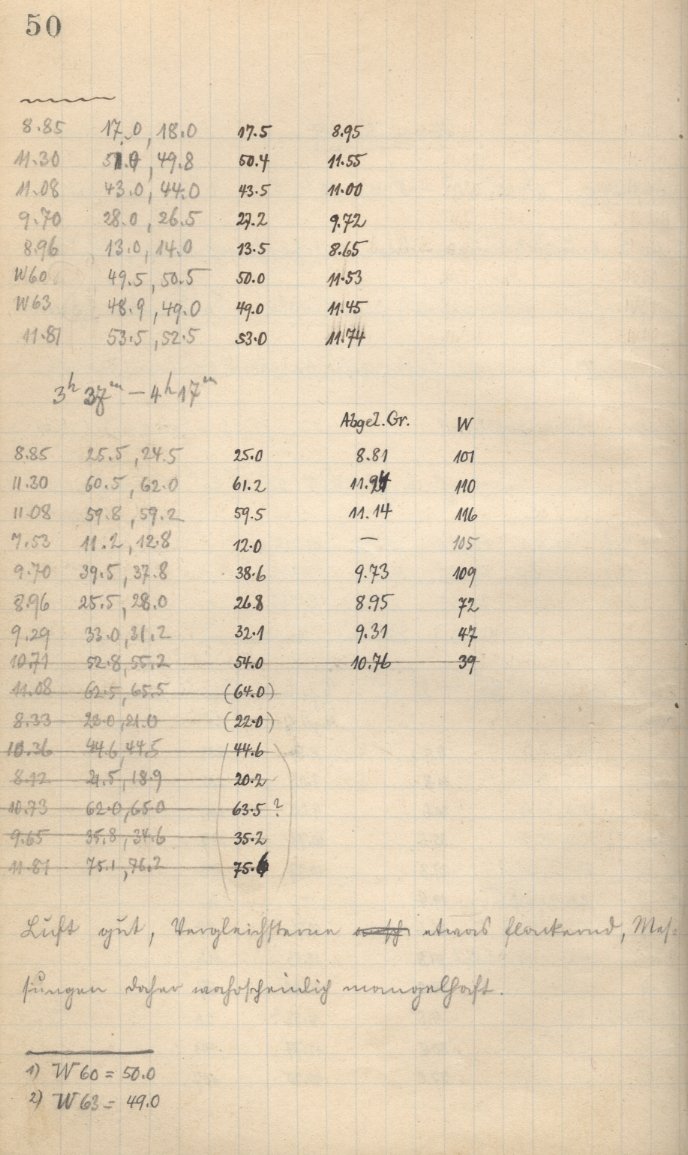 50
8.85 17.0, 18.0 17.5 8.95
11.30 51.0, 49.8 50.4 11.55
11.08 43.0, 44.0 43.5 11.00
9.70 28.0, 26.5 27.2 9.72
8.96 13.0, 14.0 13.5 8.65
W60 49.5, 50.5 50.0 11.53
W63 48.9, 49.0 49.0 11.45
11.81 53.5, 52.5 53.0 11.74
3h 37m – 4h 17m
Abgel. Gr. W
8.85 25.5, 24.5 25.0 8.81 101
11.30 60.5, 62.0 61.2 110
11.08 59.8, 59.2 59.5 11.14 116
7.53 11.2, 12.8 12.0 – 105
9.70 39.5, 37.8 38.6 9.73 109
8.96 25.5, 28.0 26.8 8.95 72
9.29 33.0, 31.2 32.1 9.31 47
10.71 52.8, 55.2 54.0 10.76 39
11.08 62.5, 65.5 (64.0)
8.33 23.0, 21.0 (22.0)
10.36 44.6, 44.5 44.6
8.12 21.5, 18.9 20.2
10.73 62.0, 65.0 63.5 ?
9.65 35.8, 34.6 35.2
11.81 75.1, 76.2 75.6
Luft gut, Vergleichsterne etwas flackernd, Mes-
sungen daher wahrscheinlich mangelhaft.
1) W60 = 50.0
2) W63 = 49.0